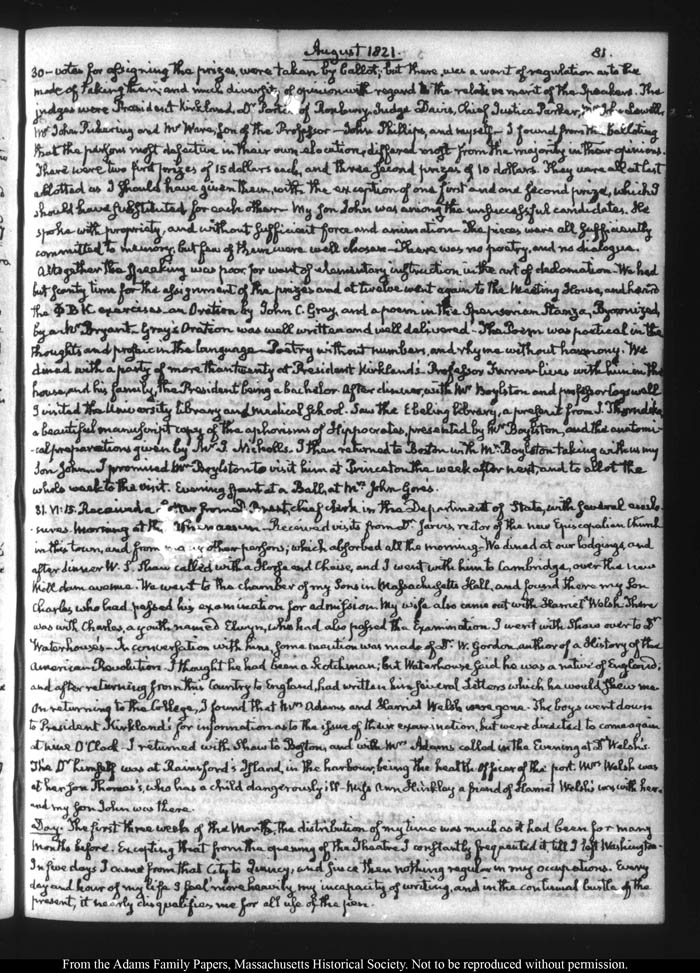 August 1821. 81.
30 - votes for assigning the prizes, were taken by ballot; but there was a want of regulation as to the
mode of taking them; and much diversity of opinion with regard to the relative merit of the Speakers. The
judges were President Kirkland, Dr Porter of Roxbury, Judge Davis, Chief Justice Parker, Mr John Lowell,
Mr John Pickering and Mr Ware, son of the Professor - John Phillips, and myself - I found from the balloting
that the persons most defective in their own elocution, differed most from the majority in their opinions.
There were two first prizes of 15 dollars each, and three second prizes of 10 dollars. They were all at last
allotted as I should have given them, with the exception of one first and one second prize, which I
should have substituted for each other - My son John was among the unsuccessful candidates. He
spoke with propriety, and without sufficient force and animation - The pieces were all sufficiently
committed to memory, but few of them were well chosen - There was no poetry, and no dialogue.
Altogether the speaking was poor for want of elementary instruction in the art of declamation - We had
but scanty time for the assignment of the prizes and at twelve went again to the Meeting House, and heard
the Φ B K. exercises - an Oration by John C. Gray, and a poem in the Spenserian Stanza, Byronized,
by a Mr Bryant - Gray's Oration was well written and well delivered - The Poem was poetical in the
thoughts and prosaic in the language - Poetry without numbers, and rhyme without harmony. We
dined with a party of more than twenty at President Kirkland's. Professor Farrar lives with him in the
house, and his family, the President being a bachelor. After dinner, with Mr Boylston and professor Cogswell
I visited the University Library and Medical School. Saw the Ebeling library, a present from I. Thorndike,
a beautiful manuscript copy of the aphorisms of Hippocrates, presented by Mr Boylston, and the anatomi-
-cal preparations given by Thos. I. Nicholls. I then returned to Boston with Mr Boylston taking with us my
son John - I promised Mr Boylston to visit him at Princeton the week after next, and to allot the
whole week to the visit. Evening spent at a Ball, at Mr John Gore's.
31. VI:15. Received a Letter from Brent, chief clerk in the Department of State, with several enclo-
sures. Morning at the Athenaeum - Received visits from Dr Jarvis, rector of the new Episcopalian Church
in this town, and from many other persons; which absorbed all the morning - We dined at our lodgings, and
after dinner W. S. Shaw called with a Horse and Chaise, and I went with him to Cambridge, over the new
Mill dam avenue. We went to the chamber of my Sons in Massachusetts Hall, and found there my Son
Charles who had passed his examination for admission. My wife also came out with Harriet Welsh. There
was with Charles, a youth named Elwyn, who had also passed the Examination. I went with Shaw over to Dr
Waterhouse's - In conversation with him, some mention was made of Dr W. Gordon, author of a History of the
American Revolution. I thought he had been a Scotchman; but Waterhouse said he was a native of England;
and after returning from this Country to England, had written him several Letters which he would shew me
On returning to the College, I found that Mrs Adams and Harriet Welsh were gone. The boys went down
to President Kirkland's for information as to the issue of their examination, but were directed to come again
at nine O'Clock - I returned with Shaw to Boston, and with Mrs Adams called in the Evening at Dr Welsh's.
The Dr himself was at Rainsford's Island, in the harbour, being the health officer of the port. Mrs Welsh was
at her son Thomas's, who has a child dangerously ill - Miss Ann Hinkley a friend of Harriet Welsh's was with her
and my son John was there.
Day. The first three weeks of the Month, the distribution of my time was much as it had been for many
months before. Excepting that from the opening of the Theatre I constantly frequented it till I left Washington -
In five days I came from that City to Quincy, and since then nothing regular in my occupations. Every
day and hour of my life I feel more heavily my incapacity of writing, and in the continual bustle of the
present, it nearly disqualifies me for all use of the pen.
From the Adams Family Papers, Massachusetts Historical Society. Not to be reproduced without permission.